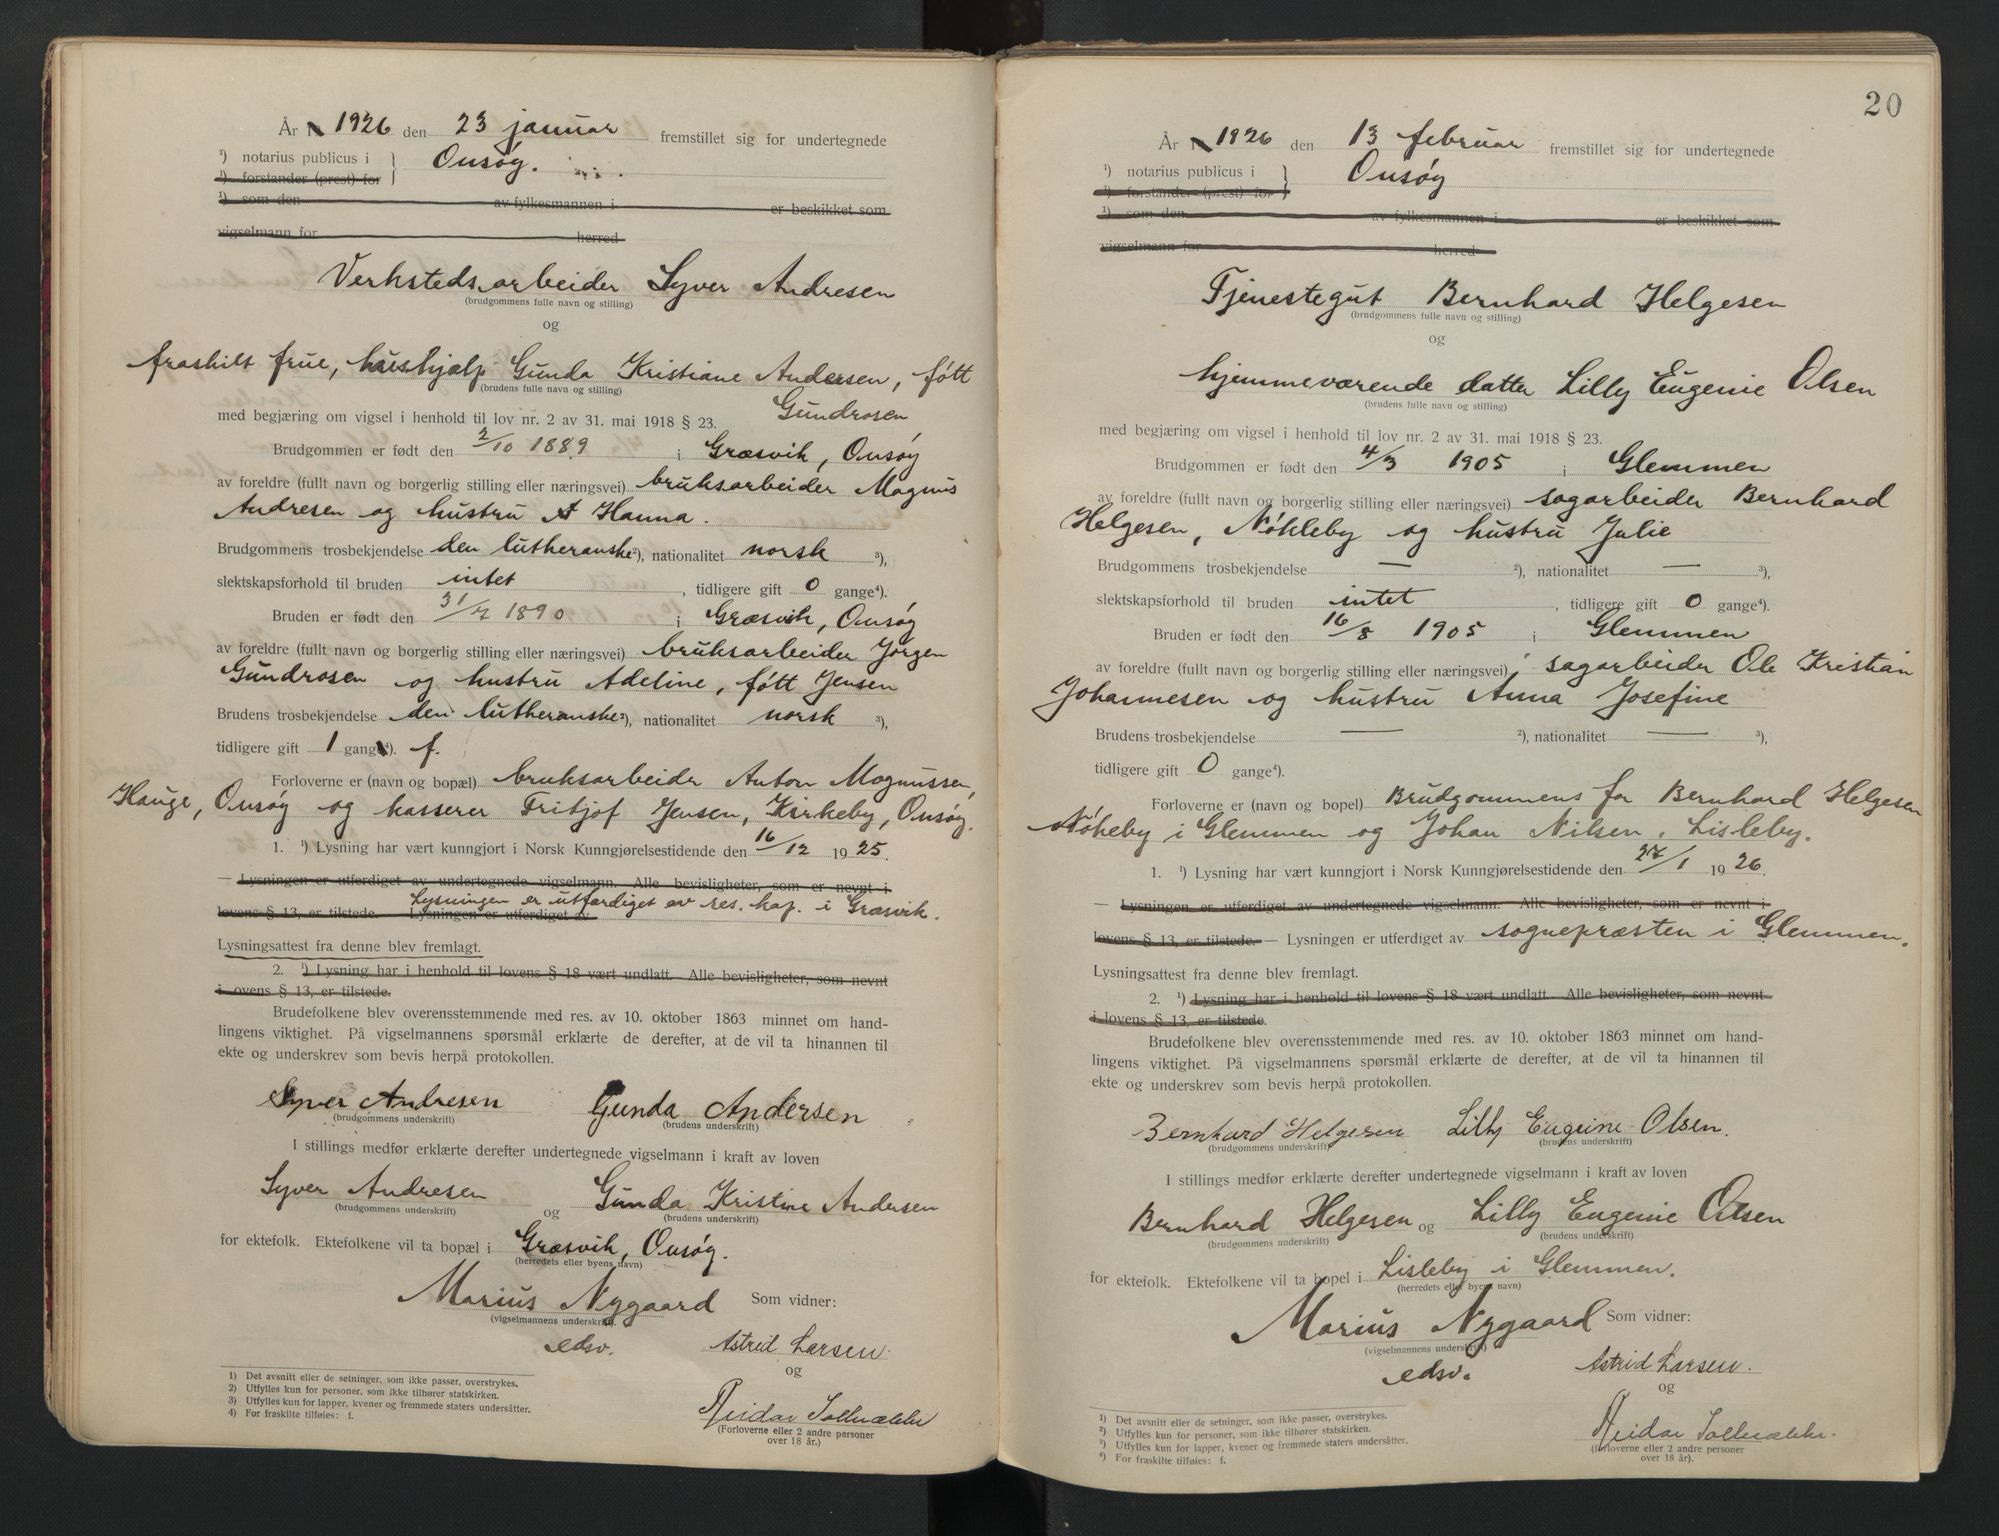 År 1926 den 23 januar fremstillet sig for undertegnede
¹) notarius publicus i } Onsøy.
¹) forstander (prest) for
¹) som den av fylkesmannen i er beskikket som
vigselmann for herred
Verkstedsarbeider Syver Andresen
(brudgommens fulle navn og stilling)
og
fraskilt frue, hushjælp Gunda Kristiane Andersen, føtt
(brudens fulle navn og stilling)
Gundrosen
med begjæring om vigsel i henhold til lov nr. 2 av 31. mai 1918 § 23.
Brudgommen er født den 2/10 1889 i Græsvik, Onsøy
av foreldre (fullt navn og borgerlig stilling eller næringsvei) bruksarbeider Magnus
Andresen og hustru Hanna.
Brudgommens trosbekjendelse den lutheranske ²), nationalitet norsk ³),
slektskapsforhold til bruden intet, tidligere gift 0 gange⁴).
Bruden er født den 31/7 1890 i Græsvik, Onsøy
av foreldre (fullt navn og borgerlig stilling eller næringsvei) bruksarbeider Jørgen
Gundrosen og hustru Adeline, føtt Jensen
Brudens trosbekjendelse den lutheranske ²), nationalitet norsk ³),
tidligere gift 1 gang ⁴). f.
Forloverne er (navn og bopæl) bruksarbeider Anton Magnussen,
Hauge, Onsøy og kasserer Fritjof Jensen, Kirkeby, Onsøy.
1. ¹) Lysning har vært kunngjort i Norsk Kunngjørelsestidende den 16/12 1925.
— Lysningen er utferdiget av undertegnede vigselmann. Alle bevisligheter, som er nevnt i
Lysningen er utfærdiget av res. kap. i Græsvik.
lovens § 13, er tilstede. Lysningen er utferdiget av
Lysningsattest fra denne blev fremlagt.
2. ¹) Lysning har i henhold til lovens § 18 vært undlatt. Alle bevisligheter, som nevnt
i lovens § 13, er tilstede.
Brudefolkene blev overensstemmende med res. av 10. oktober 1863 minnet om hand-
lingens viktighet. På vigselmannens spørsmål erklærte de derefter, at de vil ta hinannen til
ekte og underskrev som bevis herpå protokollen.
Syver Andresen Gunda Andersen
(brudgommens underskrift) (brudens underskrift)
I stillings medfør erklærte derefter undertegnede vigselmann i kraft av loven
Syver Andresen og Gunda Kristine Andersen
(brudgommens underskrift) (brudens underskrift)
for ektefolk. Ektefolkene vil ta bopæl i Græsvik, Onsøy.
(herredets eller byens navn)
Marius Nygaard Som vidner:
(vigselmannens underskrift)
edsv. Astrid Larsen
og
Reidar Solbrække
(Forloverne eller 2 andre personer
over 18 år.)
1) Det avsnitt eller de setninger, som ikke passer, overstrykes.
2) Utfylles kun for personer, som ikke tilhører statskirken.
3) Utfylles kun for lapper, kvener og fremmede staters undersåtter.
4) For fraskilte tilføies: f.
20
År 1926 den 13 februar fremstillet sig for undertegnede
¹) notarius publicus i } Onsøy
¹) forstander (prest) for
¹) som den av fylkesmannen i er beskikket som
vigselmann for herred
Tjenestegut Bernhard Helgesen
(brudgommens fulle navn og stilling)
og
hjemmeværende datter Lilly Eugenie Olsen
(brudens fulle navn og stilling)
med begjæring om vigsel i henhold til lov nr. 2 av 31. mai 1918 § 23.
Brudgommen er født den 4/3 1905 i Glemmen
av foreldre (fullt navn og borgerlig stilling eller næringsvei) sagarbeider Bernhard
Helgesen, Nøkleby og hustru Julie
Brudgommens trosbekjendelse — ²), nationalitet — ³),
slektskapsforhold til bruden intet, tidligere gift 0 gange⁴).
Bruden er født den 16/8 1905 i Glemmen
av foreldre (fullt navn og borgerlig stilling eller næringsvei) sagarbeider Ole Kristian
Johannesen og hustru Anna Josefine
Brudens trosbekjendelse — ²), nationalitet — ³),
tidligere gift 0 gange⁴).
Forloverne er (navn og bopel) Brudgommens far Bernhard Helgesen
Nøkeby i Glemmen og Johan Nilsen, Lisleby.
1. ¹) Lysning har vært kunngjort i Norsk Kunngjørelsestidende den 27/1 1926.
— Lysningen er utferdiget av undertegnede vigselmann. Alle bevisligheter, som er nevnt i
lovens § 13, er tilstede. — Lysningen er utferdiget av sognepræsten i Glemmen.
Lysningsattest fra denne blev fremlagt.
2. ¹) Lysning har i henhold til lovens § 18 vært undlatt. Alle bevisligheter, som nevnt
i lovens § 13, er tilstede.
Brudefolkene blev overensstemmende med res. av 10. oktober 1863 minnet om hand-
lingens viktighet. På vigselmannens spørsmål erklærte de derefter, at de vil ta hinannen til
ekte og underskrev som bevis herpå protokollen.
Bernhard Helgesen Lilly Eugenie Olsen.
(brudgommens underskrift) (brudens underskrift)
I stillings medfør erklærte derefter undertegnede vigselmann i kraft av loven
Bernhard Helgesen og Lilly Eugenie Olsen
(brudgommens underskrift) (brudens underskrift)
for ektefolk. Ektefolkene vil ta bopel i Lisleby i Glemmen.
(herredets eller byens navn)
Marius Nygaard Som vidner:
(vigselmannens underskrift)
edsv. Astrid Larsen.
og
Reidar Solbrække.
(Forloverne eller 2 andre personer
over 18 år).
¹) Det avsnitt eller de setninger, som ikke passer, overstrykes.
²) Utfylles kun for personer, som ikke tilhører statskirken.
³) Utfylles kun for lapper, kvener og fremmede staters undersåtter.
⁴) For fraskilte tilføies: f.